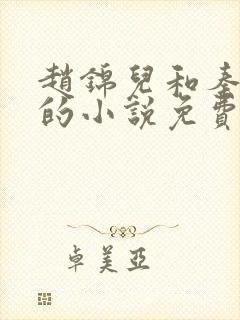 趙錦兒和秦
的小說免費
卓美亞